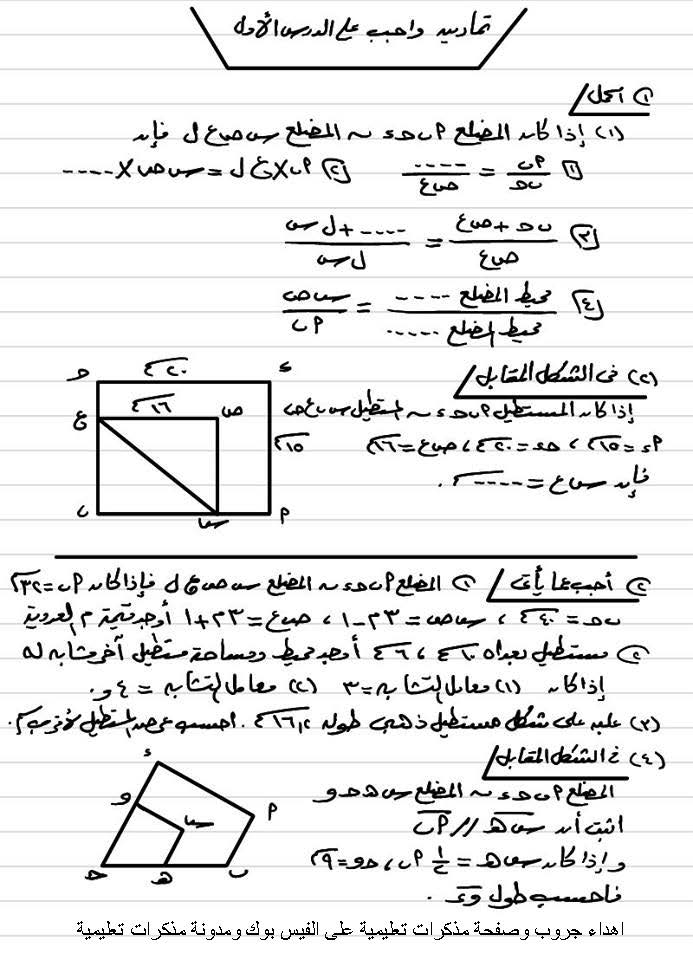 تمارين واجب على الدرس الأول
① أكمل
(١) إذا كان المضلع أ ب ح ء ~ المضلع س ص ع ل فإن
① أ ب / ب ح = ---- / ص ع ② أ ب × ع ل = س ص × ----
③ ب ح + ص ع / ص ع = ---- + ل س / ل س
④ محيط المضلع ---- / محيط المضلع ---- = س ص / أ ب
(٢) فى الشكل المقابل
إذا كان المستطيل أ ب ح ء ~ المستطيل س ب ع ص
أ ء = ١٥سم ، ح ء = ٢٠سم ، ص ع = ١٦سم
فإن س ع = ---- سم .
ح ٢٠سم ء
ع ١٦سم ص
١٥سم
ب س أ
② أجب عما يأتى ① المضلع أ ب ح ء ~ المضلع س ص ع ل فإذا كان أ ب = ٣٢سم
ب ح = ٤٠سم ، س ص = ٣م - ١ ، ص ع = ٣م + ١ أوجد قيمة م العددية
② مستطيل بعداه ١٠سم ، ٦سم أوجد محيط ومساحة مستطيل آخر مشابه له
إذا كان (١) معامل التشابه = ٣ (٢) معامل التشابه = ٤و.
(٣) علبة على شكل مستطيل ذهبى طوله ١٦٫٢سم . احسب عرض المستطيل لأقرب سم.
(٤) فى الشكل المقابل
المضلع أ ب ح ء ~ المضلع س ه ح و
اثبت أن س ه // أ ب
وإذا كان س ه = ١/٢ أ ب ، ح و = ٩سم
فاحسب طول و ء .
ء
و س أ
ح ه ب
اهداء جروب وصفحة مذكرات تعليمية على الفيس بوك ومدونة مذكرات تعليمية